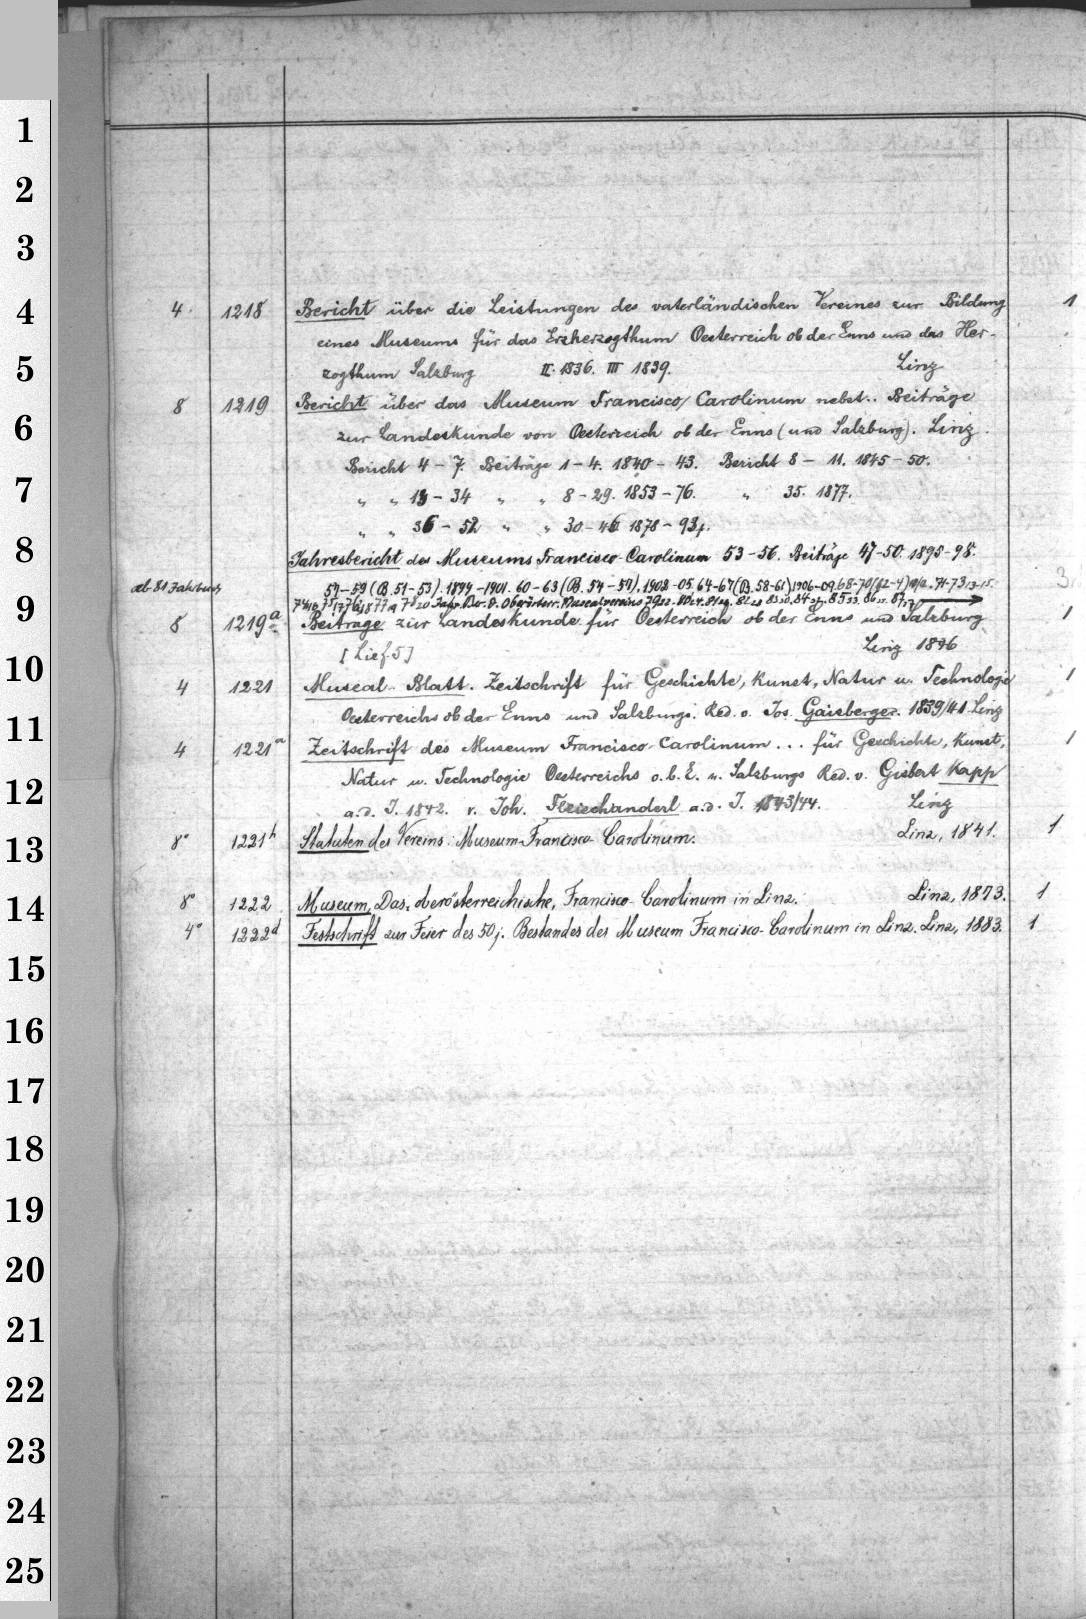 1
2
3
4
5
6
7
8
9
10
11
12
13
14
15
16
17
18
19
20
21
22
23
24
25
4. 1218 Bericht über die Leistungen des vaterländischen Vereines zur Bildung 1
eines Museums für das Erzherzogthum Oesterreich ob der Enns und das Her-
zogthum Salzburg II. 1836. III 1839. Linz
8 1219 Bericht über das Museum Francisco Carolinum nebst.. Beiträge
zur Landeskunde von Oesterreich ob der Enns (und Salzburg). Linz.
Bericht 4-7. Beiträge 1-4. 1840-43. Bericht 8-11. 1845-50.
" " 13-34 " " 8-29. 1853-76. " 35. 1877.
" " 36-52 " " 30-46 1878-94.
Jahresbericht des Museums Francisco-Carolinum 53-56. Beiträge 47-50. 1895-98.
ab 81 Jahrbuch 57-59 (B. 51-53). 1899-1901. 60-63 (B. 54-57). 1902-05. 64-67 (B. 58-61) 1906-09. 3
Jahr. Ber. d. Oberösterr. Musealvereins
8 1219a Beitrage zur Landeskunde für Oesterreich ob der Enns und Salzburg 1
[Lief. 5] Linz 1846
4 1221 Museal-Blatt. Zeitschrift für Geschichte, Kunst, Natur u. Technologie 1
Oesterreichs ob der Enns und Salzburgs. Red. v. Jos. Gaisberger. 1839/41 Linz
4 1221a Zeitschrift des Museum Francisco-Carolinum ... für Geschichte, Kunst, 1
Natur u. Technologie Oesterreichs o. b. E. u. Salzburgs Red. v. Gisbert Kapp
a. d. J. 1842. v. Joh. Fleischanderl a. d. J. 1843/44. Linz
8° 1221h Statuten des Vereins: Museum Francisco-Carolinum. Linz, 1841. 1
8° 1222 Museum, Das, oberösterreichische, Francisco-Carolinum in Linz. Linz, 1873. 1
4° 1222d Festschrift zur Feier des 50j. Bestandes des Museum Francisco-Carolinum in Linz. Linz, 1883. 1